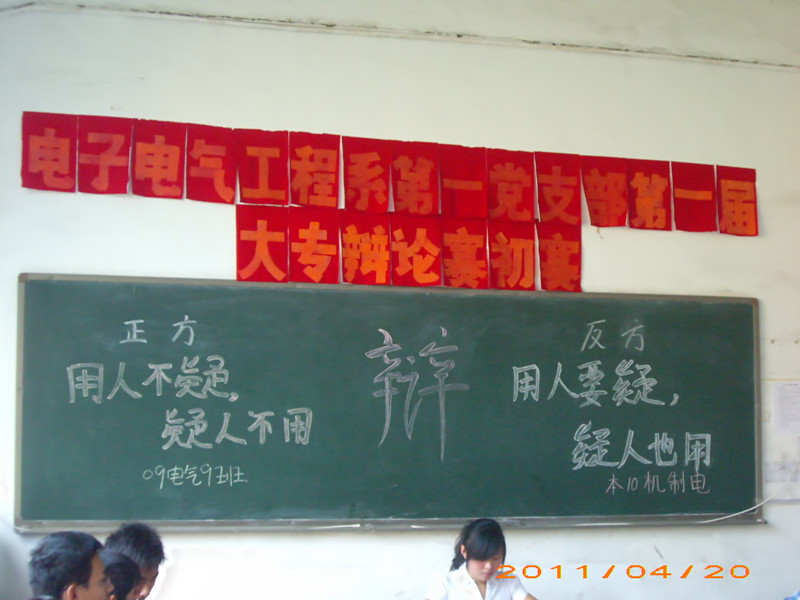 电子电气工程系第一党支部第一届
大专辩论赛初赛
正方
用人不疑,
疑人不用
09电气9班.
辩
反方
用人要疑,
疑人也用
本10机制电
2011/04/20